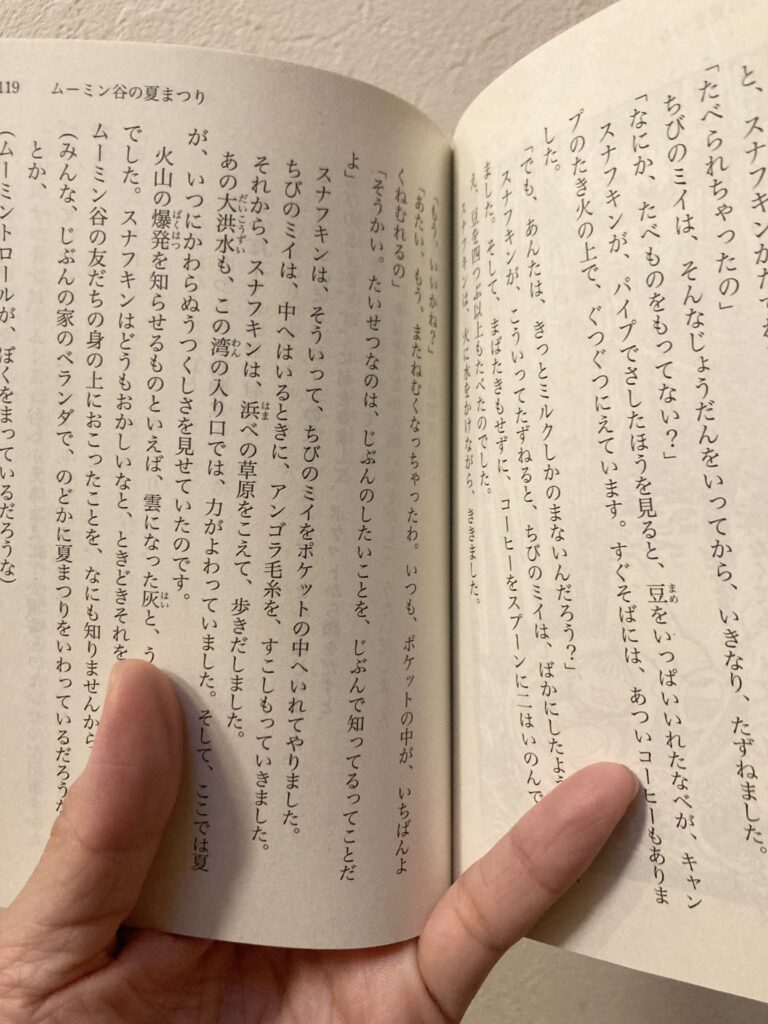 と、スナフキンがたずね
「たべられちゃったの」
ちびのミイは、そんなじょうだんをいってから、いきなり、たずねました。
「なにか、たべものをもってない？」
スナフキンが、パイプでさしたほうを見ると、豆をいっぱいいれたなべが、キャン
プのたき火の上で、ぐつぐつにえています。すぐそばには、あついコーヒーもありま
した。
「でも、あんたは、きっとミルクしかのまないんだろう？」
スナフキンが、こういってたずねると、ちびのミイは、ばかにしたよう
ました。そして、まばたきもせずに、コーヒーをスプーンに二はいのんで
え、豆を四つぶ以上もたべたのでした。
スナフキンは、火に水をかけながら、ききました。
「もう、いいかね？」
「あたい、もう、またねむくなっちゃったわ。いつも、ポケットの中が、いちばんよ
くねむれるの」
「そうかい。たいせつなのは、じぶんのしたいことを、じぶんで知ってるってことだ
よ」
スナフキンは、そういって、ちびのミイをポケットの中へいれてやりました。
ちびのミイは、中へはいるときに、アンゴラ毛糸を、すこしもっていきました。
それから、スナフキンは、浜べの草原をこえて、歩きだしました。
あの大洪水も、この湾の入り口では、力がよわっていました。そして、ここでは夏
が、いつにかわらぬうつくしさを見せていたのです。
火山の爆発を知らせるものといえば、雲になった灰と、う
でした。スナフキンはどうもおかしいなと、ときどきそれを
ムーミン谷の友だちの身の上におこったことを、なにも知りませんから
（みんな、じぶんの家のベランダで、のどかに夏まつりをいわっているだろうな
とか、
（ムーミントロールが、ぼくをまっているだろうな）
119 ムーミン谷の夏まつり